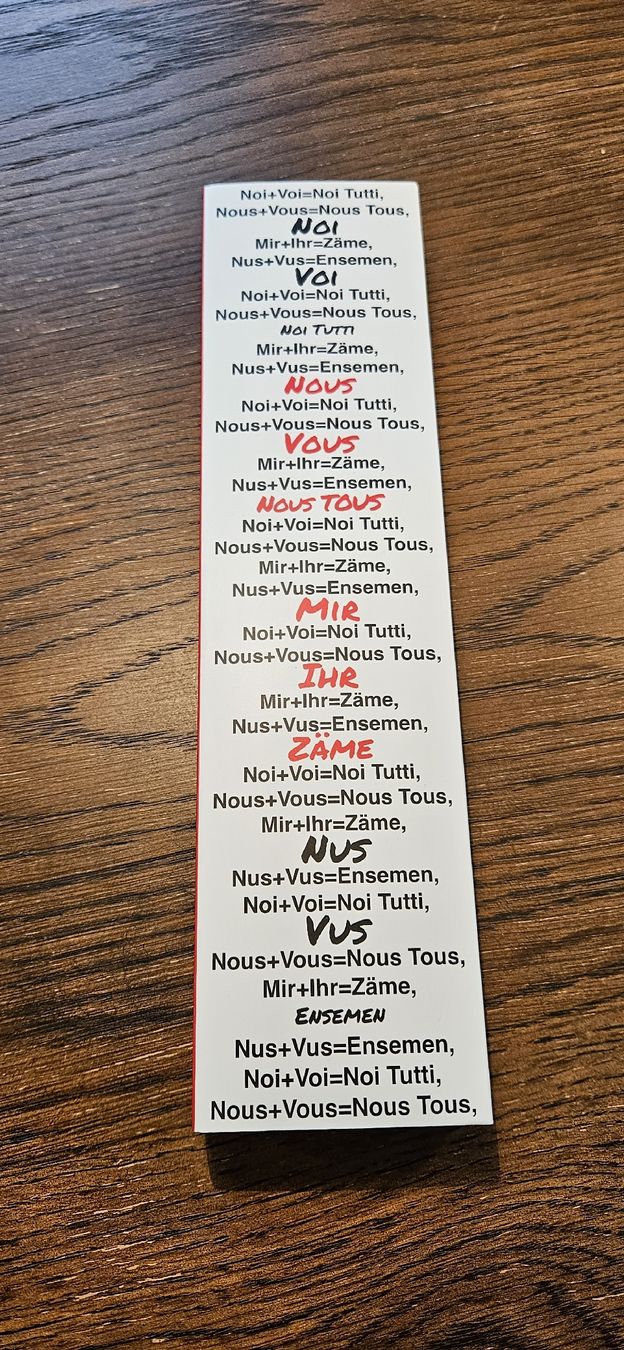 Noi+Voi=Noi Tutti,
Nous+Vous=Nous Tous,
NOI
Mir+Ihr=Zäme,
Nus+Vus=Ensemen,
VOI
Noi+Voi=Noi Tutti,
Nous+Vous=Nous Tous,
NOI TUTTI
Mir+Ihr=Zäme,
Nus+Vus=Ensemen,
NOUS
Noi+Voi=Noi Tutti,
Nous+Vous=Nous Tous,
VOUS
Mir+Ihr=Zäme,
Nus+Vus=Ensemen,
NOUS TOUS
Noi+Voi=Noi Tutti,
Nous+Vous=Nous Tous,
Mir+Ihr=Zäme,
Nus+Vus=Ensemen,
MIR
Noi+Voi=Noi Tutti,
Nous+Vous=Nous Tous,
IHR
Mir+Ihr=Zäme,
Nus+Vus=Ensemen,
ZÄME
Noi+Voi=Noi Tutti,
Nous+Vous=Nous Tous,
Mir+Ihr=Zäme,
NUS
Nus+Vus=Ensemen,
Noi+Voi=Noi Tutti,
VUS
Nous+Vous=Nous Tous,
Mir+Ihr=Zäme,
ENSEMEN
Nus+Vus=Ensemen,
Noi+Voi=Noi Tutti,
Nous+Vous=Nous Tous,